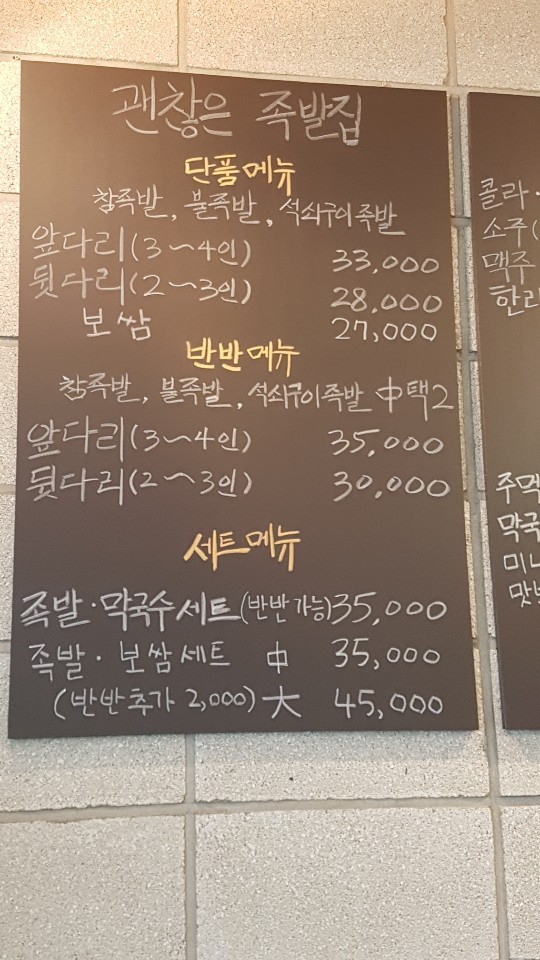 괜찮은 족발집
단품메뉴
참족발, 불족발, 석쇠구이족발
앞다리(3~4인) 33,000
뒷다리(2~3인) 28,000
보쌈 27,000
반반메뉴
참족발, 불족발, 석쇠구이족발 中택2
앞다리(3~4인) 35,000
뒷다리(2~3인) 30,000
세트메뉴
족발·막국수세트(반반가능) 35,000
족발·보쌈세트 中 35,000
(반반추가 2,000) 大 45,000
콜라·
소주(
맥주
한라
주먹
막국
미니